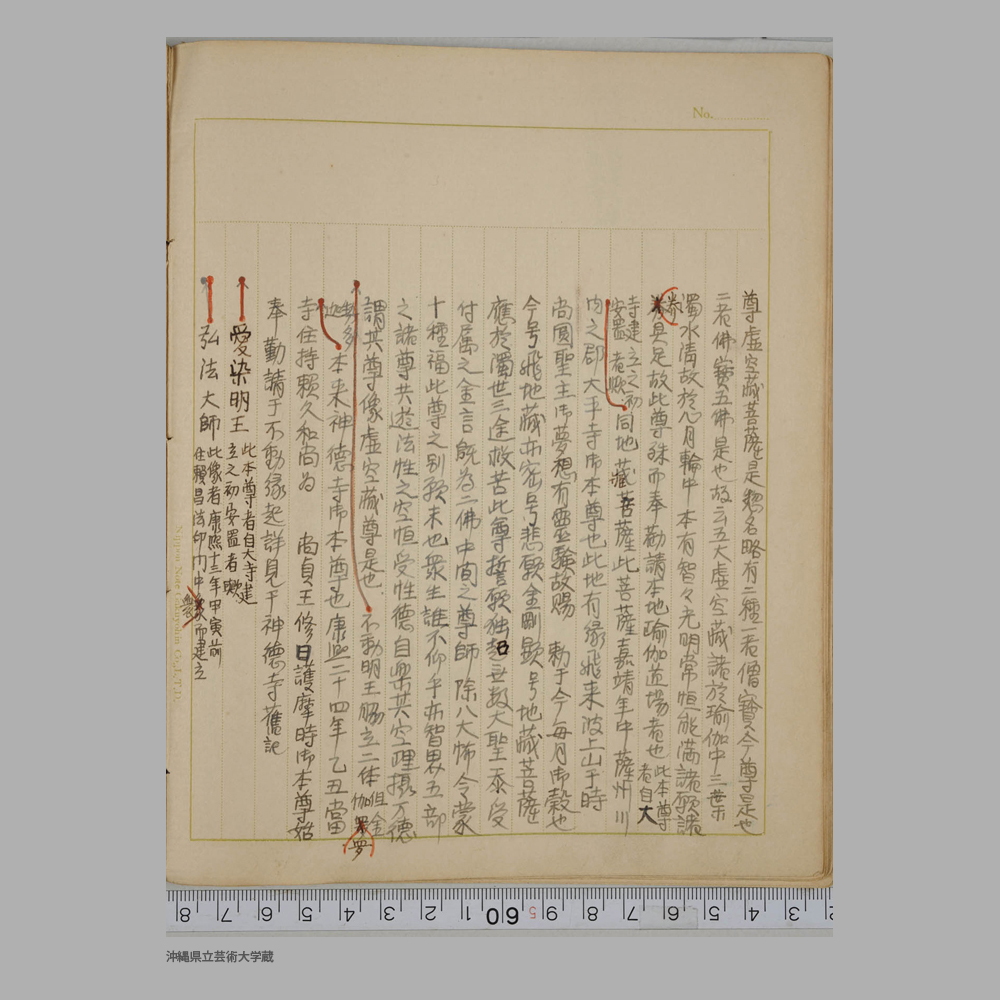 No.
尊虚空蔵菩薩是惣名略有二種一者僧寳今尊是也
二者佛寳五佛是也故云五大虚空蔵諸於瑜伽中三業
濁水清故於心月輪中本有智々光明常恒能満諸願諸
具足故此尊殊而奉勧請本地瑜伽道場者也此本尊者自大
寺建立之初安置者歟同地蔵菩薩此菩薩嘉靖年中薩州川
内之郡大平寺御本尊也此地有縁飛来波上山于時
尚圓聖主御夢想有霊験故賜 勅于今毎月御穀也
今号飛地蔵亦密号悲願金剛顕号地蔵菩薩
應於濁世三途救苦此尊誓願独超無数大聖忝受
付属之金言既為二佛中間之尊師除八大怖令蒙
十種福此尊之别願末也衆生誰不仰乎亦智界五部
之諸尊共遊法性之空恒受性徳自楽其空理摂万徳
謂其尊像虚空蔵尊是也 不動明王脇立二体但金伽羅
本来神徳寺御本尊也康熙二十四年乙丑當
寺住持頼久和尚為 尚貞王修日護摩時御本尊始
奉勤請于不動縁起詳見于神徳寺舊記
愛染明王 此本尊者自大寺建立之初安置者歟
弘法大師 此像者康熙十三年甲寅前住頼昌法印門中衆而建立
8 7 6 5 4 3 2 1 60 9 8 7 6 5 4 3 2
沖縄県立芸術大学蔵